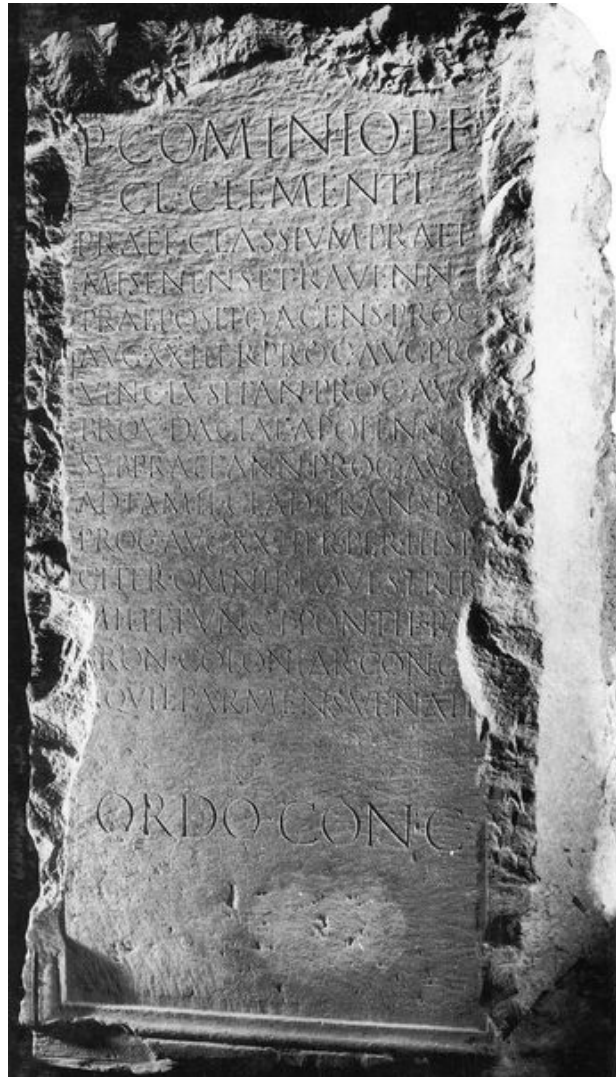 P·COMINIO·P·F
CL·CLEMENTI
PRAEF·CLASSIVM·PRAET
MISENENS ET RAVENN
PRAEPOSITO·A CENS·PROC
AVG·XX·HER·PROC·AVG·PRO
VINC LVSITAN·PROC·AVG
PROV·DACIAE APOLENSIS
SVBPRAEF·ANN·PROC·AVG
AD FAMIL·GLAD·TRANSPA
PROC·AVG·XX·HER·PER·HISP
CITER·OMNIB·EQVESTRIB
MILIT FVNCT PONTIF·PA
RON·COLONIAR·CONC
QVIL PARMENS VENAF
ORDO·CON·C